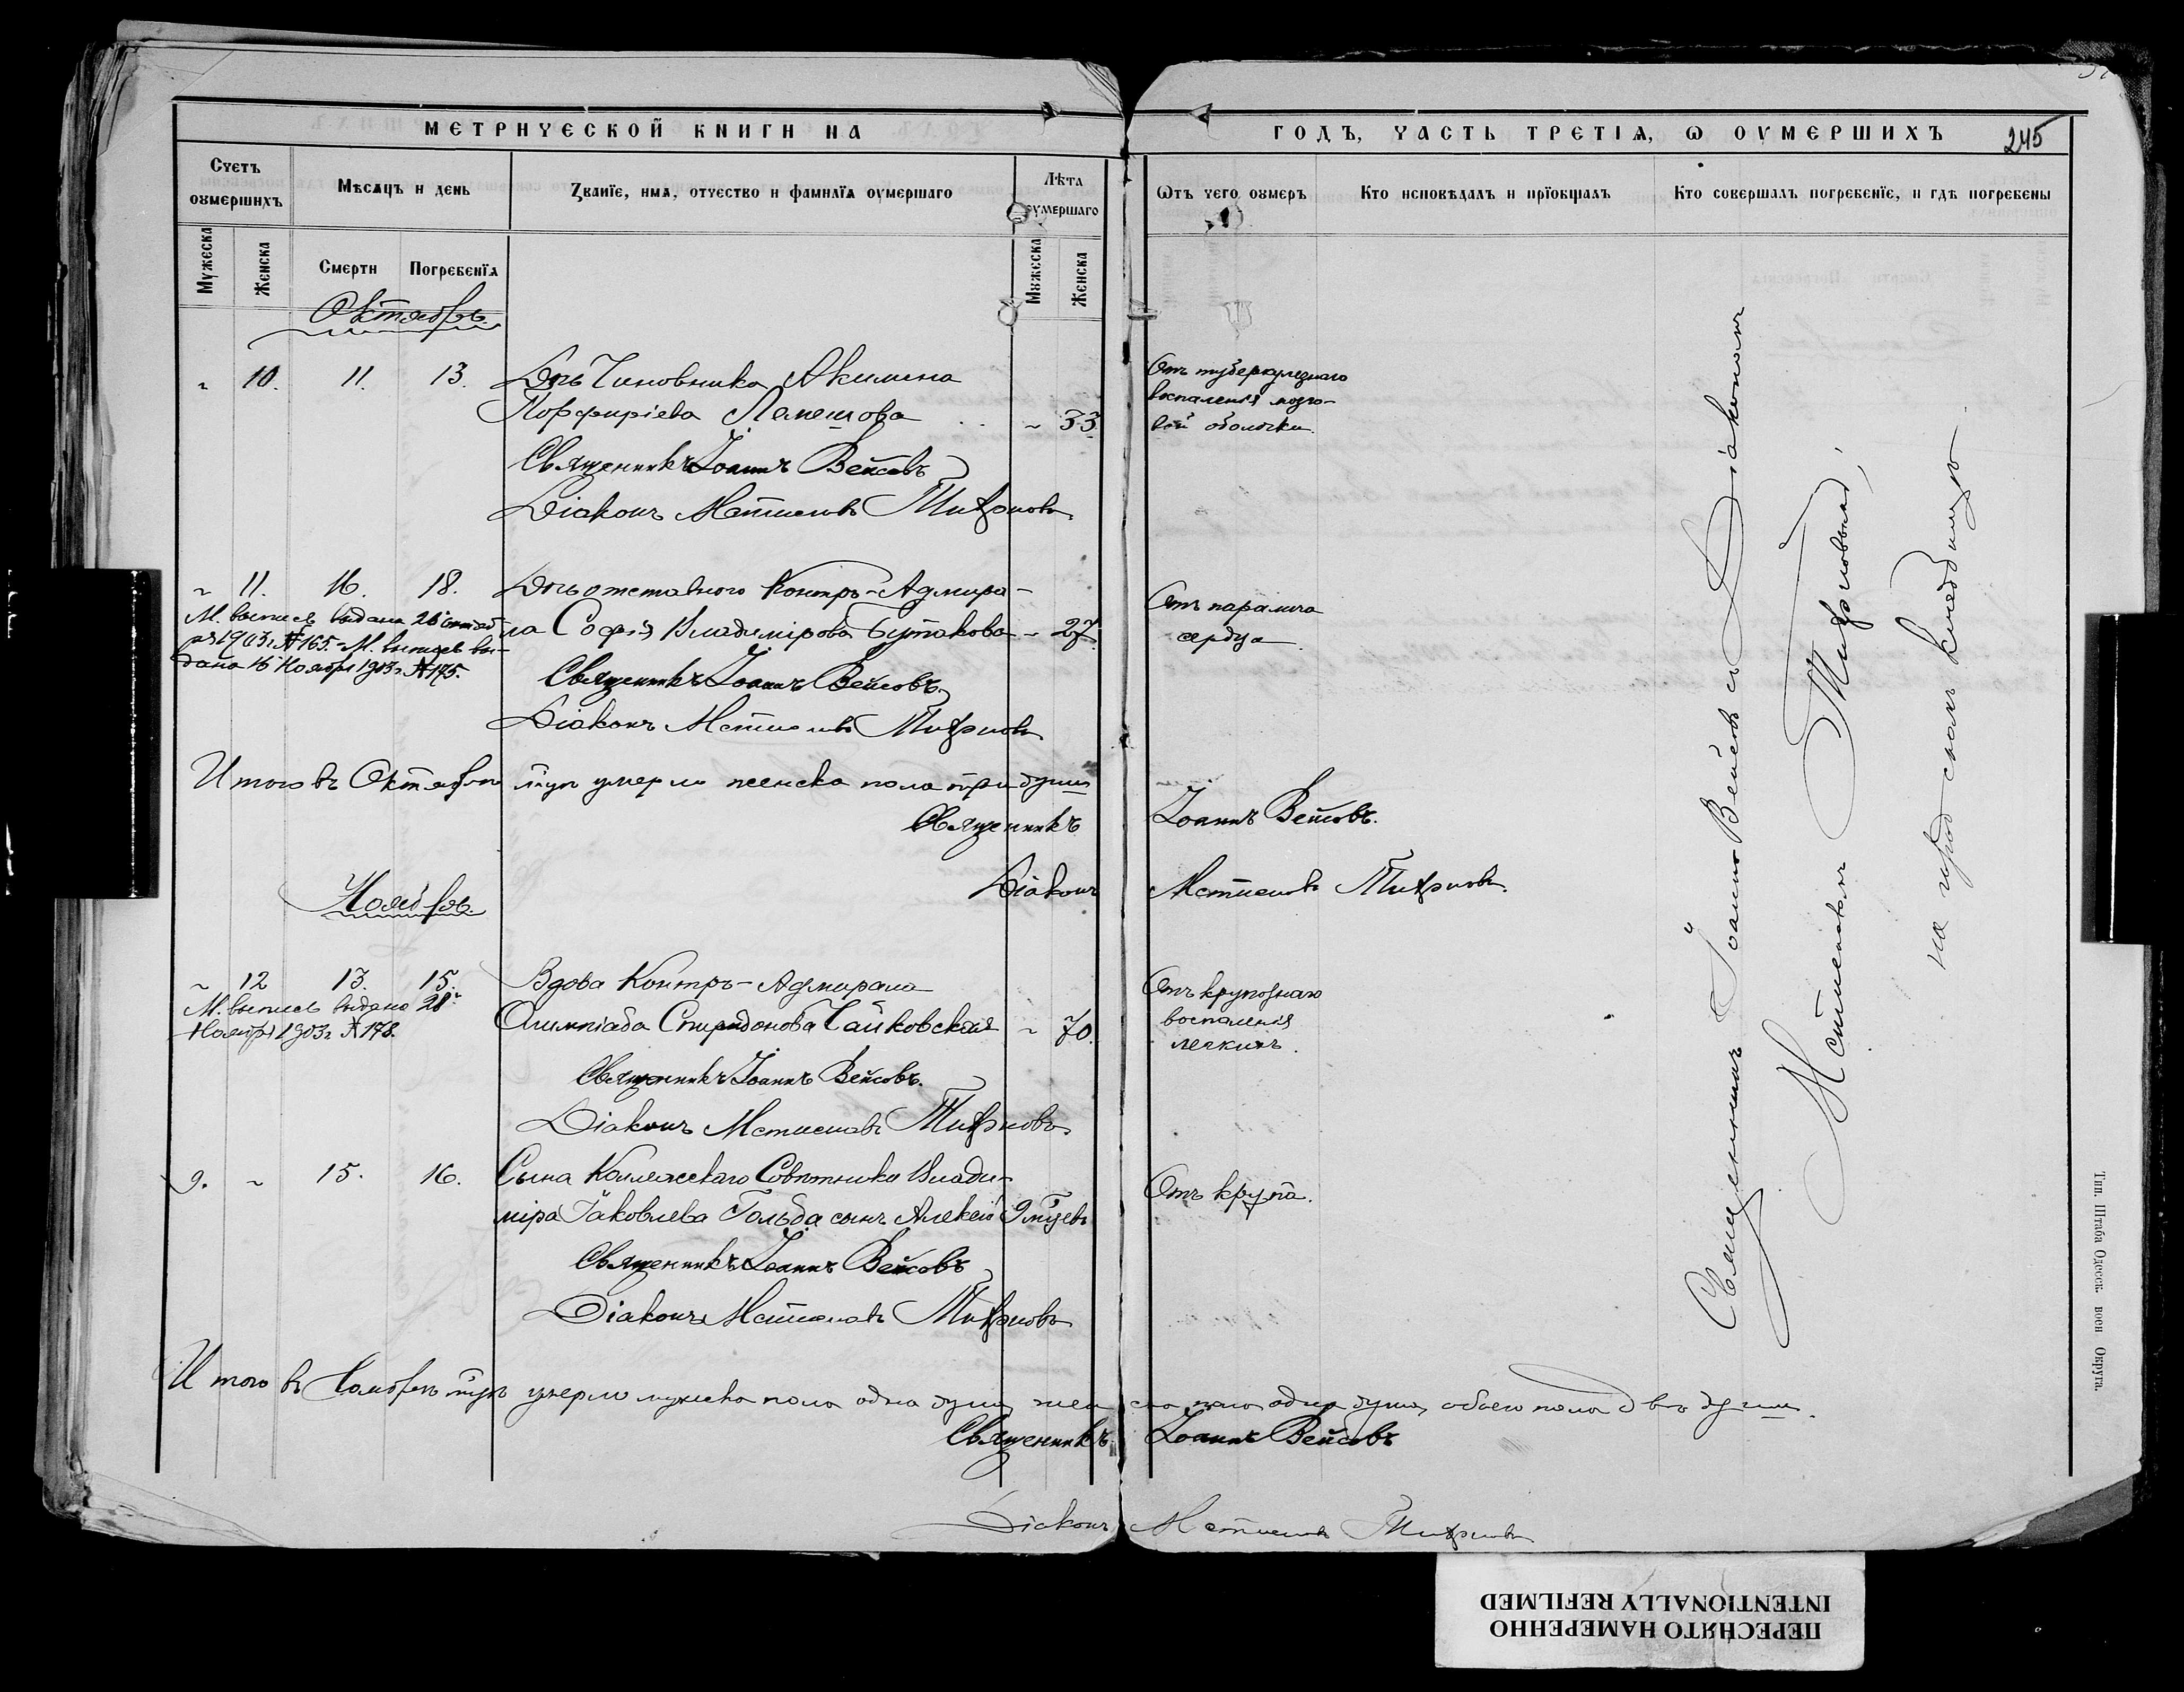 МЕТРИЧЕСКОЙ КНИГИ НА ГОДЪ, ЧАСТЬ ТРЕТІЯ, Ѡ ОУМЕРШИХЪ
245
Счетъ оумершихъ
Мѣсяцъ и день
Званіе, имя, отчество и фамилія оумершаго
Лѣта оумершаго
Ѿтъ чего оумеръ
Кто исповѣдалъ и пріобщалъ
Кто совершалъ погребеніе, и гдѣ погребены
Мужеска
Женска
Смерти
Погребенія
Мужеска
Женска
Октябрь.
" 10. 11. 13. Дочь Чиновника Акилина
Порфиріева Лемешова " 33.
Отъ туберкулезнаго
воспаленія мозго-
вой оболочки.
Священникъ Іоаннъ Вейсовъ
Діаконъ Мстиславъ
" 11. 16. 18. Дочь отставного Контръ-Адмира-
ла Софія Владимірова Бутакова " 27.
Отъ паралича
сердца.
М. выпись выдана 26 октяб
ря 1903 г. № 165. - М. выпись вы-
дана 16 Ноября 1903 г. № 175.
Священникъ Іоаннъ Вейсовъ.
Діаконъ Мстиславъ
Итого въ Октябрѣ м-цѣ умерло женска пола три души
Священникъ Іоаннъ Вейсовъ.
Діаконъ Мстиславъ
Ноябрь.
" 12 13. 15. Вдова Контръ-Адмирала
Олимпіада Спиридонова Чайковская " 70.
Отъ крупознаго
воспаленія
легкихъ.
М. выпись выдана 28
Ноября 1903 г. № 178.
Священникъ Іоаннъ Вейсовъ.
Діаконъ Мстиславъ
9. " 15. 16. Сына Коллежскаго Совѣтника Влади-
міра Іаковлева Гольда сынъ Алексій 9 м-цевъ
Отъ крупа.
Священникъ Іоаннъ Вейсовъ
Діаконъ Мстиславъ
Итого въ Ноябрѣ м-цѣ умерло мужска пола одна душа, женска пола одна душа, обоего пола двѣ души.
Священникъ Іоаннъ Вейсовъ
Діаконъ Мстиславъ
Священникъ Іоаннъ Вейсовъ съ Діакономъ
Мстиславомъ
на городскомъ кладбищѣ
Тип. Штаба Одесск. воен Округа.
ПЕРЕСНЯТО НАМЕРЕННО
INTENTIONALLY REFILMED